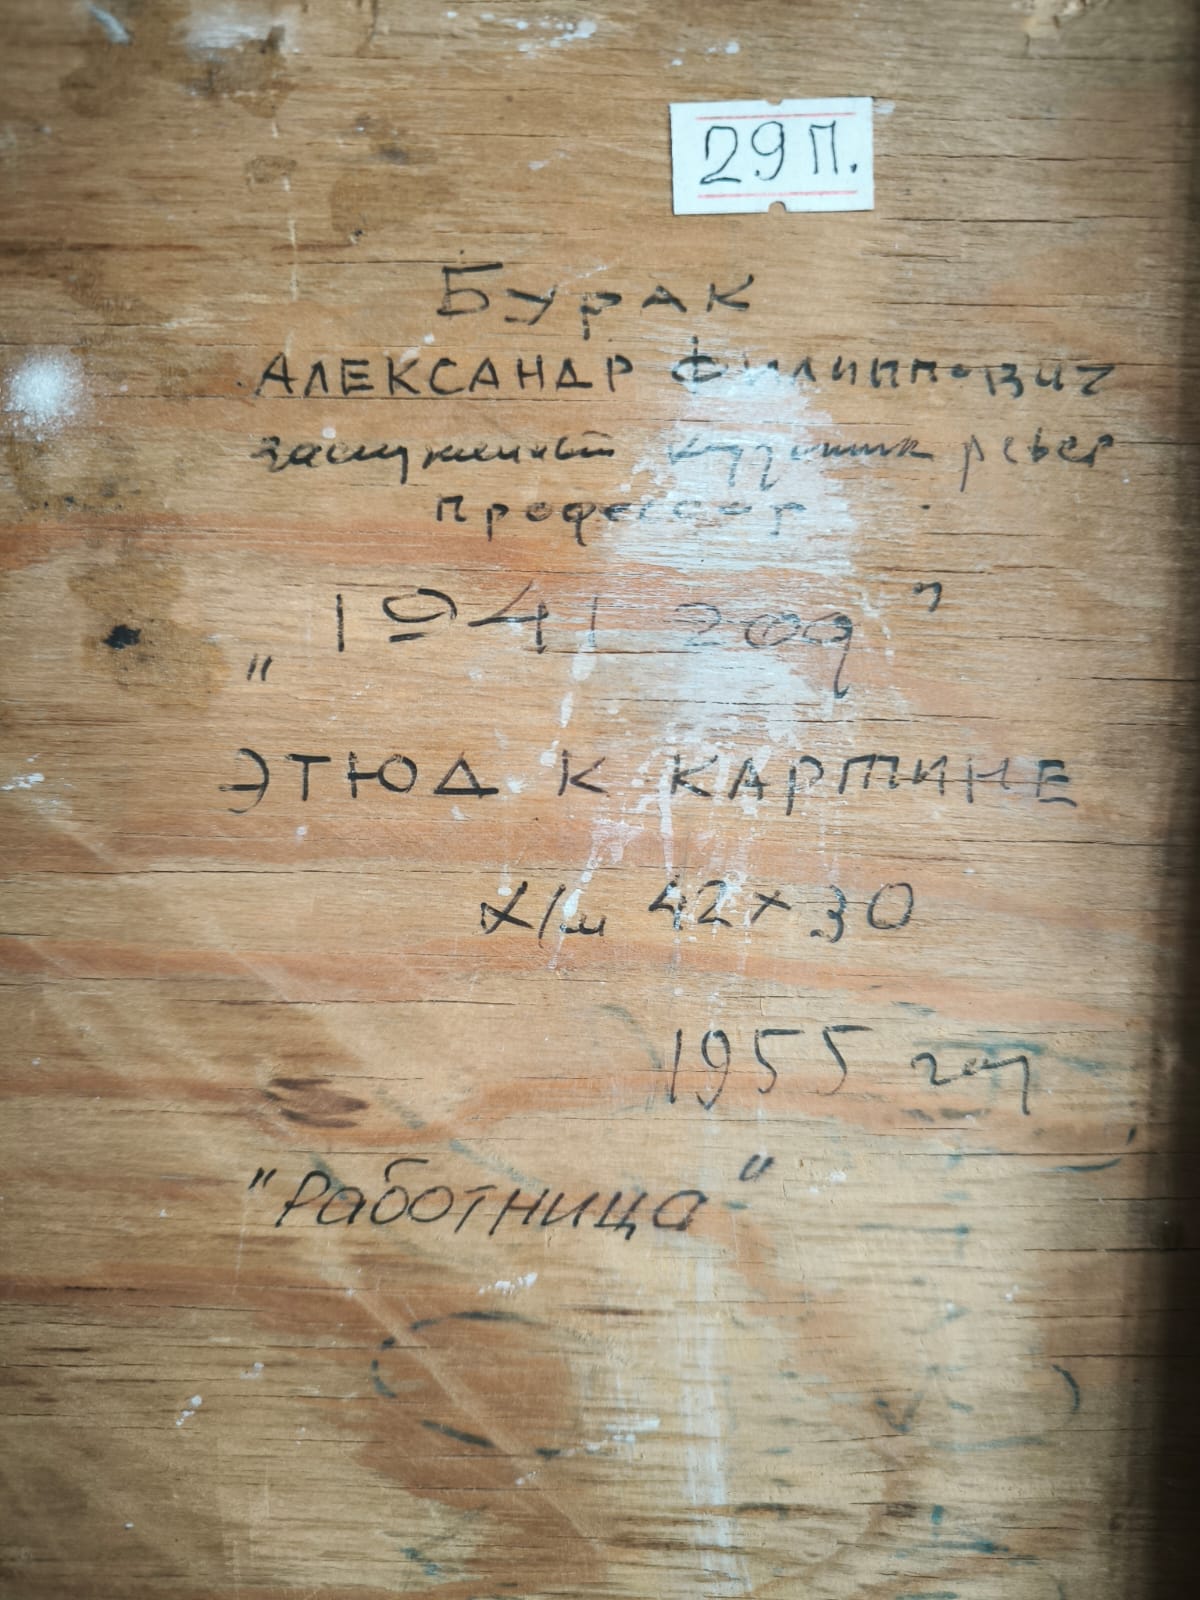 29 П.
Бурак
АЛЕКСАНДР ФИЛИППОВИЧ
заслуженный художник РСФСР
профессор
„1941 год"
ЭТЮД К КАРТИНЕ
Х/м 42×30
1955 год
"Работница"